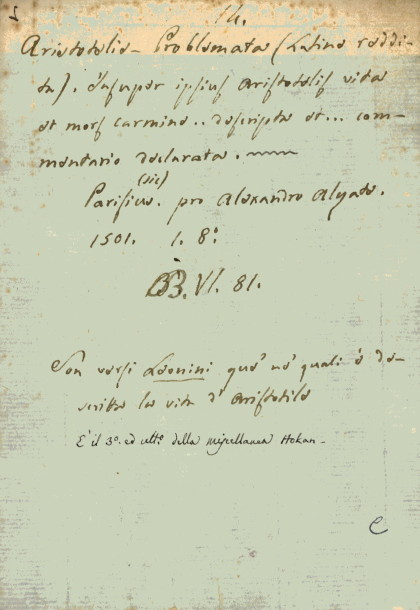 14.
Aristotelis - Problemata (Latine reddi-
ta). Insuper ipsius Aristotelis vita
et mors carmine .. descripta et ... com-
mentario declarata.
(sic)
Parisius. pro Alexandro Alyate.
1501. 1. 8°.
BB. VI. 81.
Son versi Leonini que' ne' quali è de-
scritta la vita d'Aristotile
E' il 3°. ed ult°. della miscellanea Hokan -
C